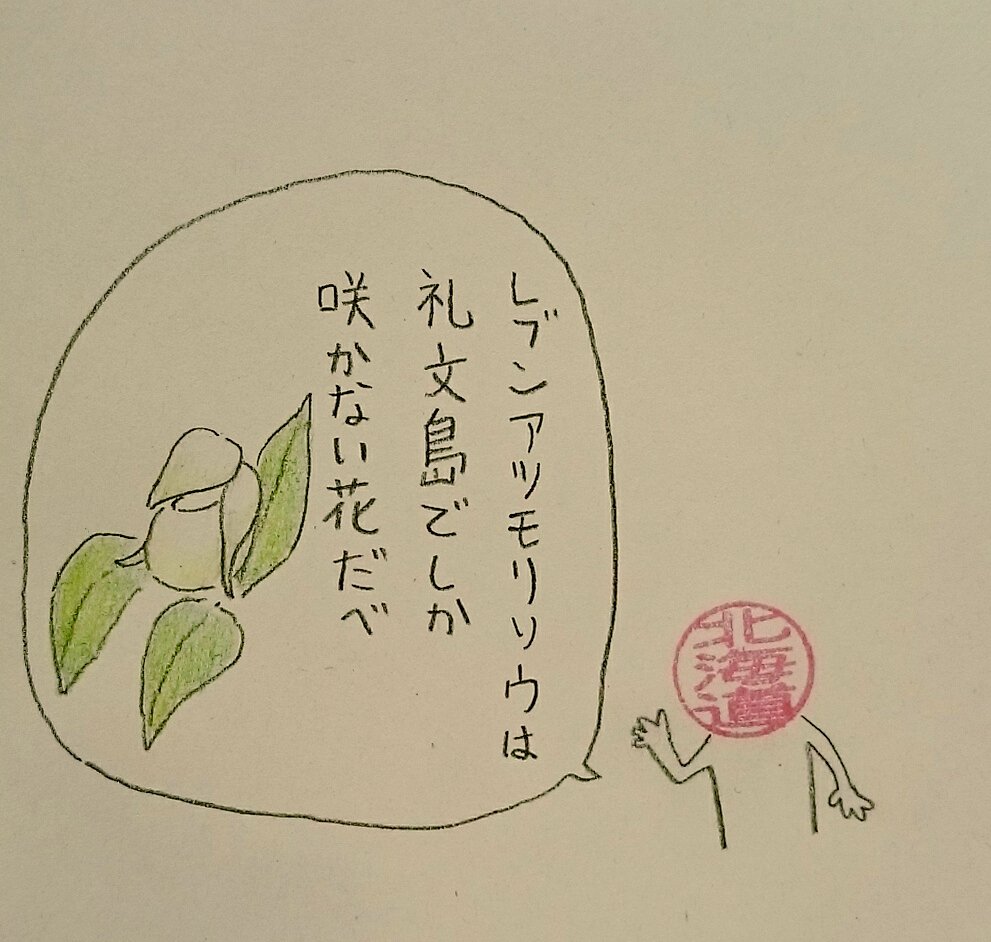 レブンアツモリソウは
礼文島でしか
咲かない花だべ
北海道